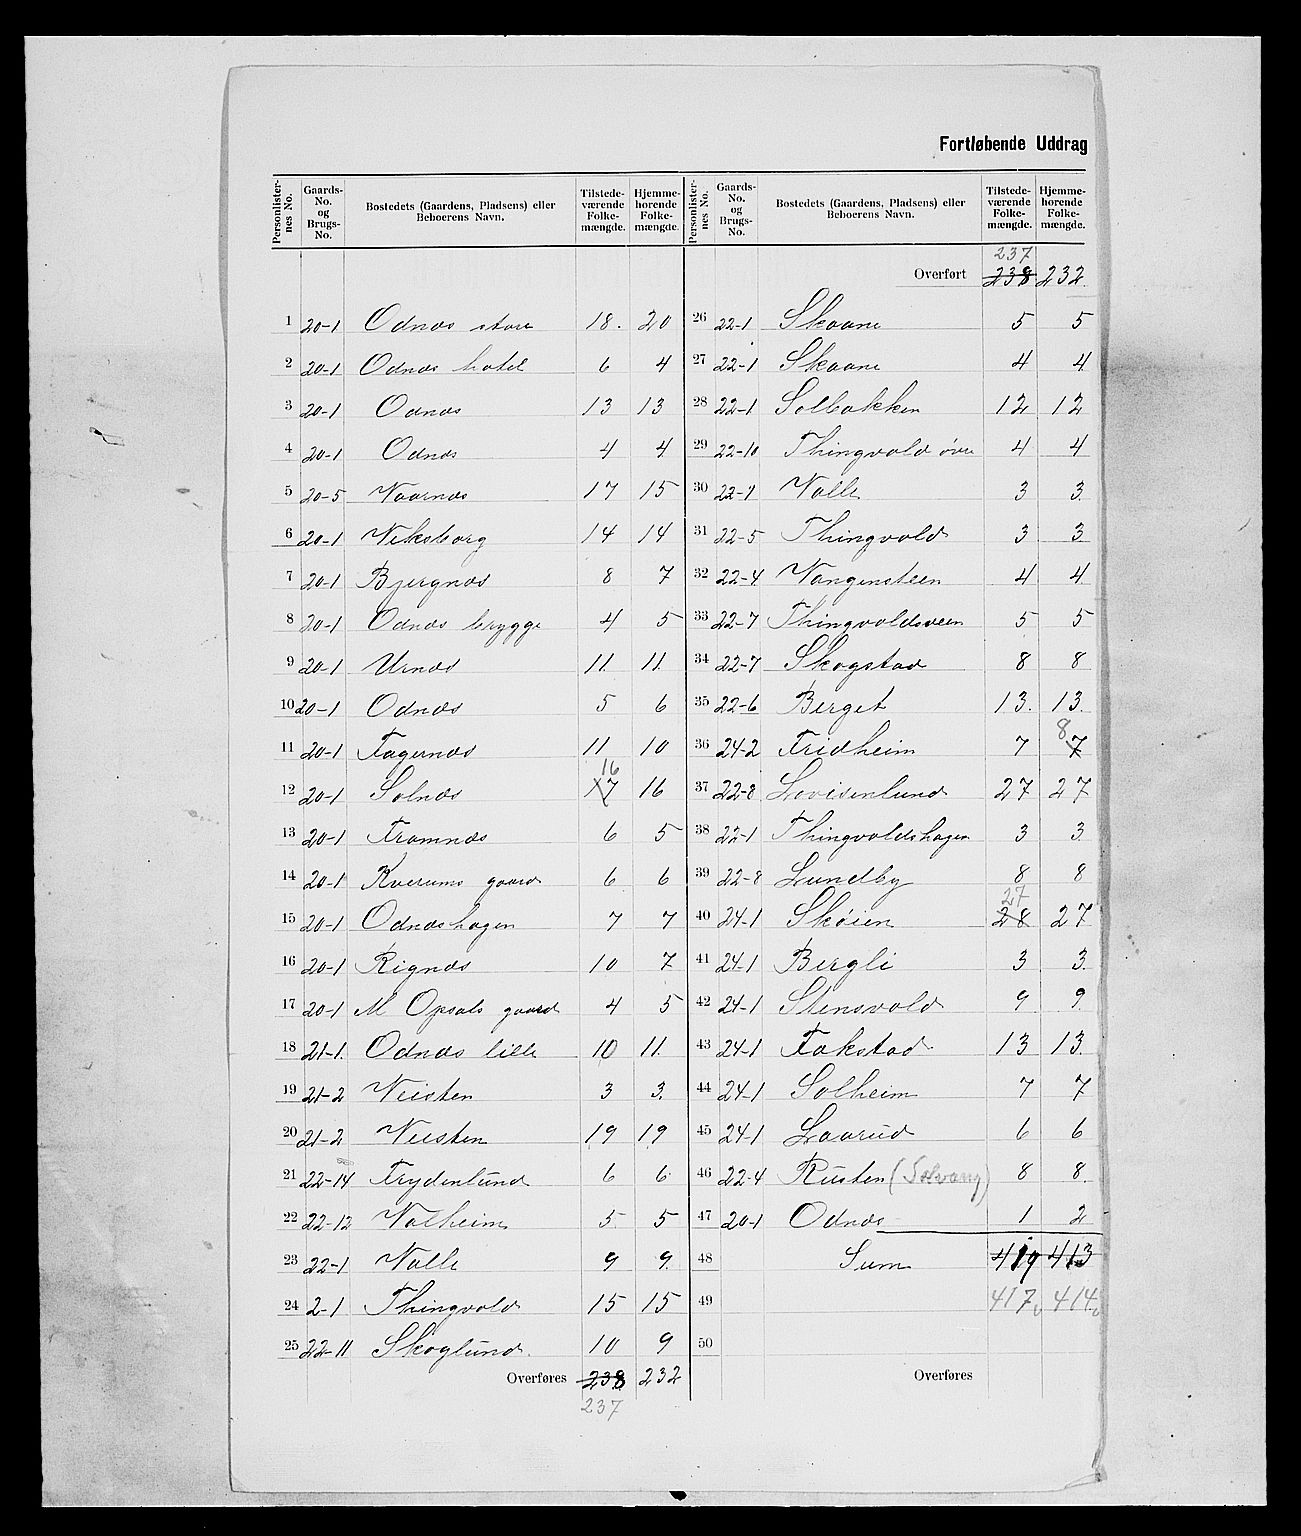 Fortløbende Uddrag
Personlister-nes No. | Gaards-No. og Brugs-No. | Bostedets (Gaardens, Pladsens) eller Beboerens Navn. | Tilstede-værende Folke-mængde. | Hjemme-hørende Folke-mængde.
1 20-1 Odnæs store 18. 20
2 20-1 Odnæs hotel 6 4
3 20-1 Odnæs 13 13
4 20-1 Odnæs 4 4
5 20-5 Vaarnæs 17 15
6 20-1 Viksborg 14 14
7 20-1 Bjergnæs 8 7
8 20-1 Odnæs brygge 4 5
9 20-1 Urnæs 11. 11.
10 20-1 Odnæs 5 6
11 20-1 Fagernæs 11 10
12 20-1 Solnæs 17 16 16
13 20-1 Framnæs 6 5
14 20-1 Kverums gaard 6 6
15 20-1 Odnæshagen 7 7
16 20-1 Rignæs 10 7
17 20-1 M Opsals gaard 4 5
18 21-1. Odnæs lille 10 11.
19 21-2 Veisten 3 3.
20 21-2 Veisten 19 19
21 22-14 Frydenlund 6 6
22 22-12 Valheim 5 5
23 22-1 Valle 9 9.
24 2-1 Thingvold 15 15
25 22-11 Skoglund. 10 9
Overføres 238 232
237
Personlister-nes No. | Gaards-No. og Brugs-No. | Bostedets (Gaardens, Pladsens) eller Beboerens Navn. | Tilstede-værende Folke-mængde. | Hjemme-hørende Folke-mængde.
237
Overført 238 232.
26 22-1 Skaane 5 5
27 22-1 Skaane 4 4
28 22-1 Solbakken 12 12
29 22-10 Thingvold övre 4 4
30 22-1 Valle 3 3.
31 22-5 Thingvold 3 3
32 22-4 Vangensteen 4 4
33 22-7 Thingvoldsveen 5 5
34 22-7 Skogstad 8 8
35 22-6 Berget 13. 13.
36 24-2 Fridheim 7 7 8
37 22-8 Lovisenlund 27 27
38 22-1 Thingvoldshagen 3 3
39 22-8 Lundby 8 8
40 24-1 Sköien 28 27 27
41 24-1 Bergli 3 3.
42 24-1 Stensvold 9 9.
43 24-1 Fakstad 13 13.
44 24-1 Solheim 7 7
45 24-1 Laarud 6 6
46 22-4 Rusten (Solvang) 8 8.
47 20-1 Odnæs 1 2
48 Sum 419 413
49 417 414
50
Overføres